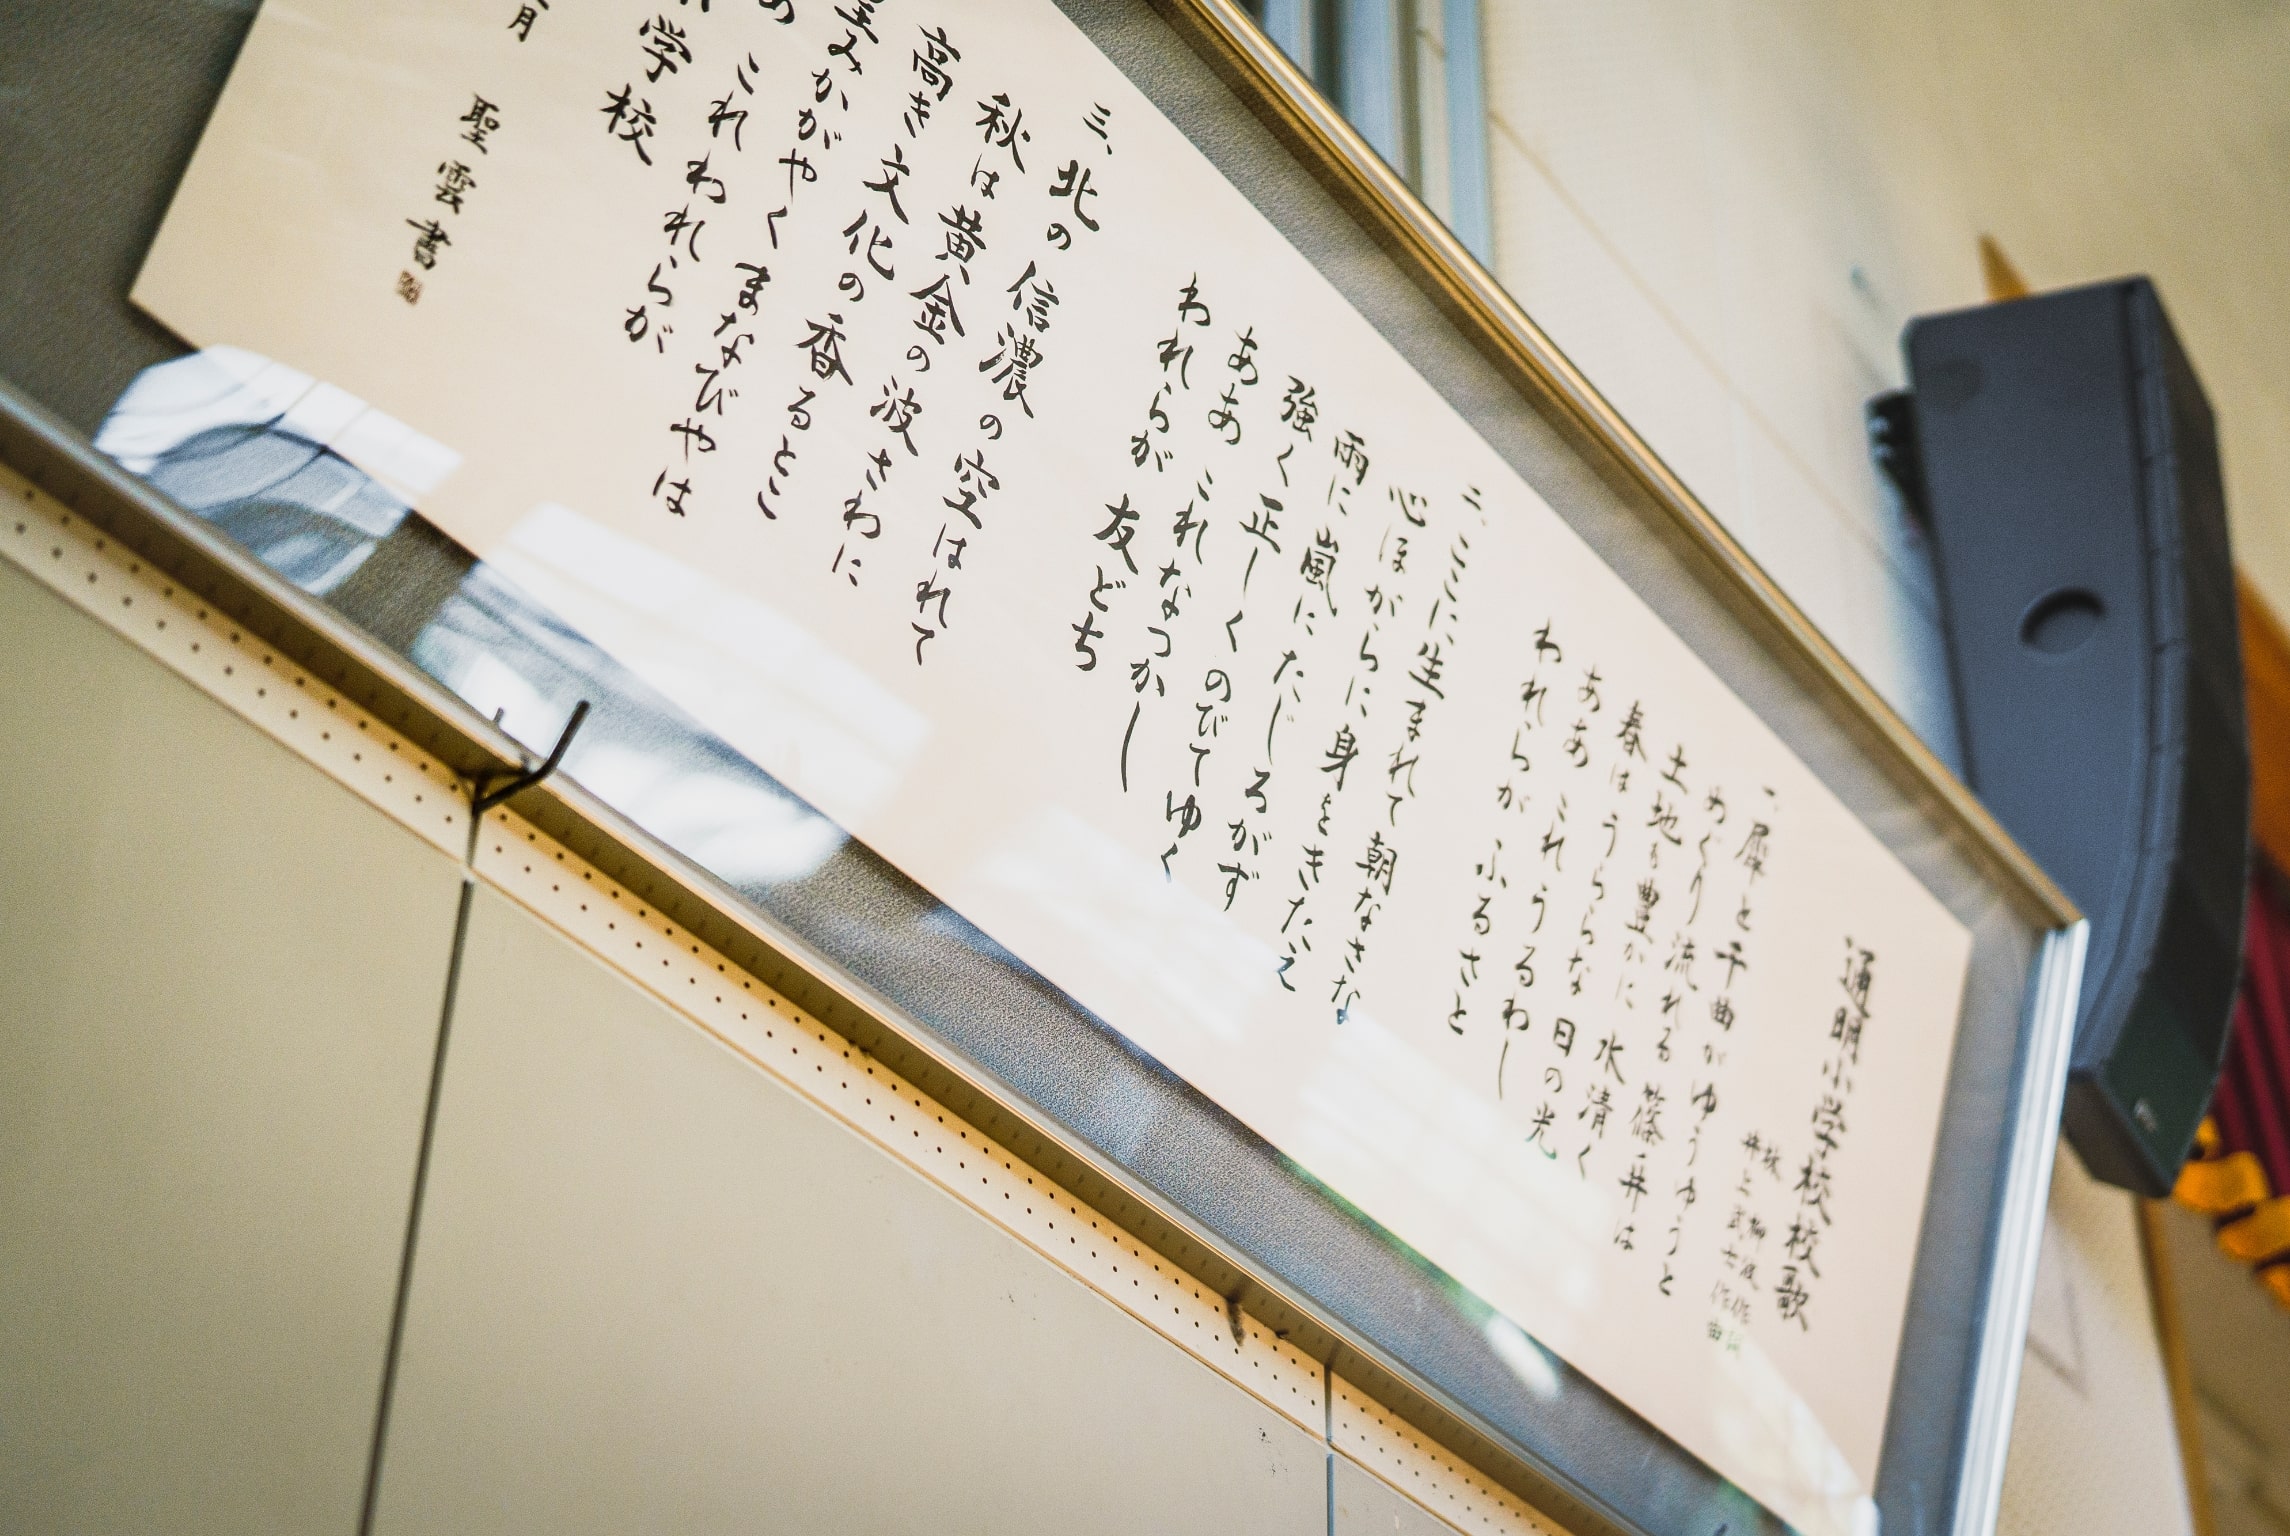 通明小学校校歌
柳波作詞
井上武士作曲
一、犀と千曲がゆうゆうと
めぐり流れる篠ノ井は
土地も豊かに水清く
春はうららな日の光
ああ これうるわし
われらが ふるさと
二、ここに生まれて朝なさな
心ほがらに身をきたえ
雨に嵐にたじろがず
強く正しくのびてゆく
ああ これなつかし
われらが 友どち
三、北の信濃の空はれて
秋は黄金の波さわに
高き文化の香るとこ
みかがやくまなびやは
これわれらが
学校
月 聖雲書